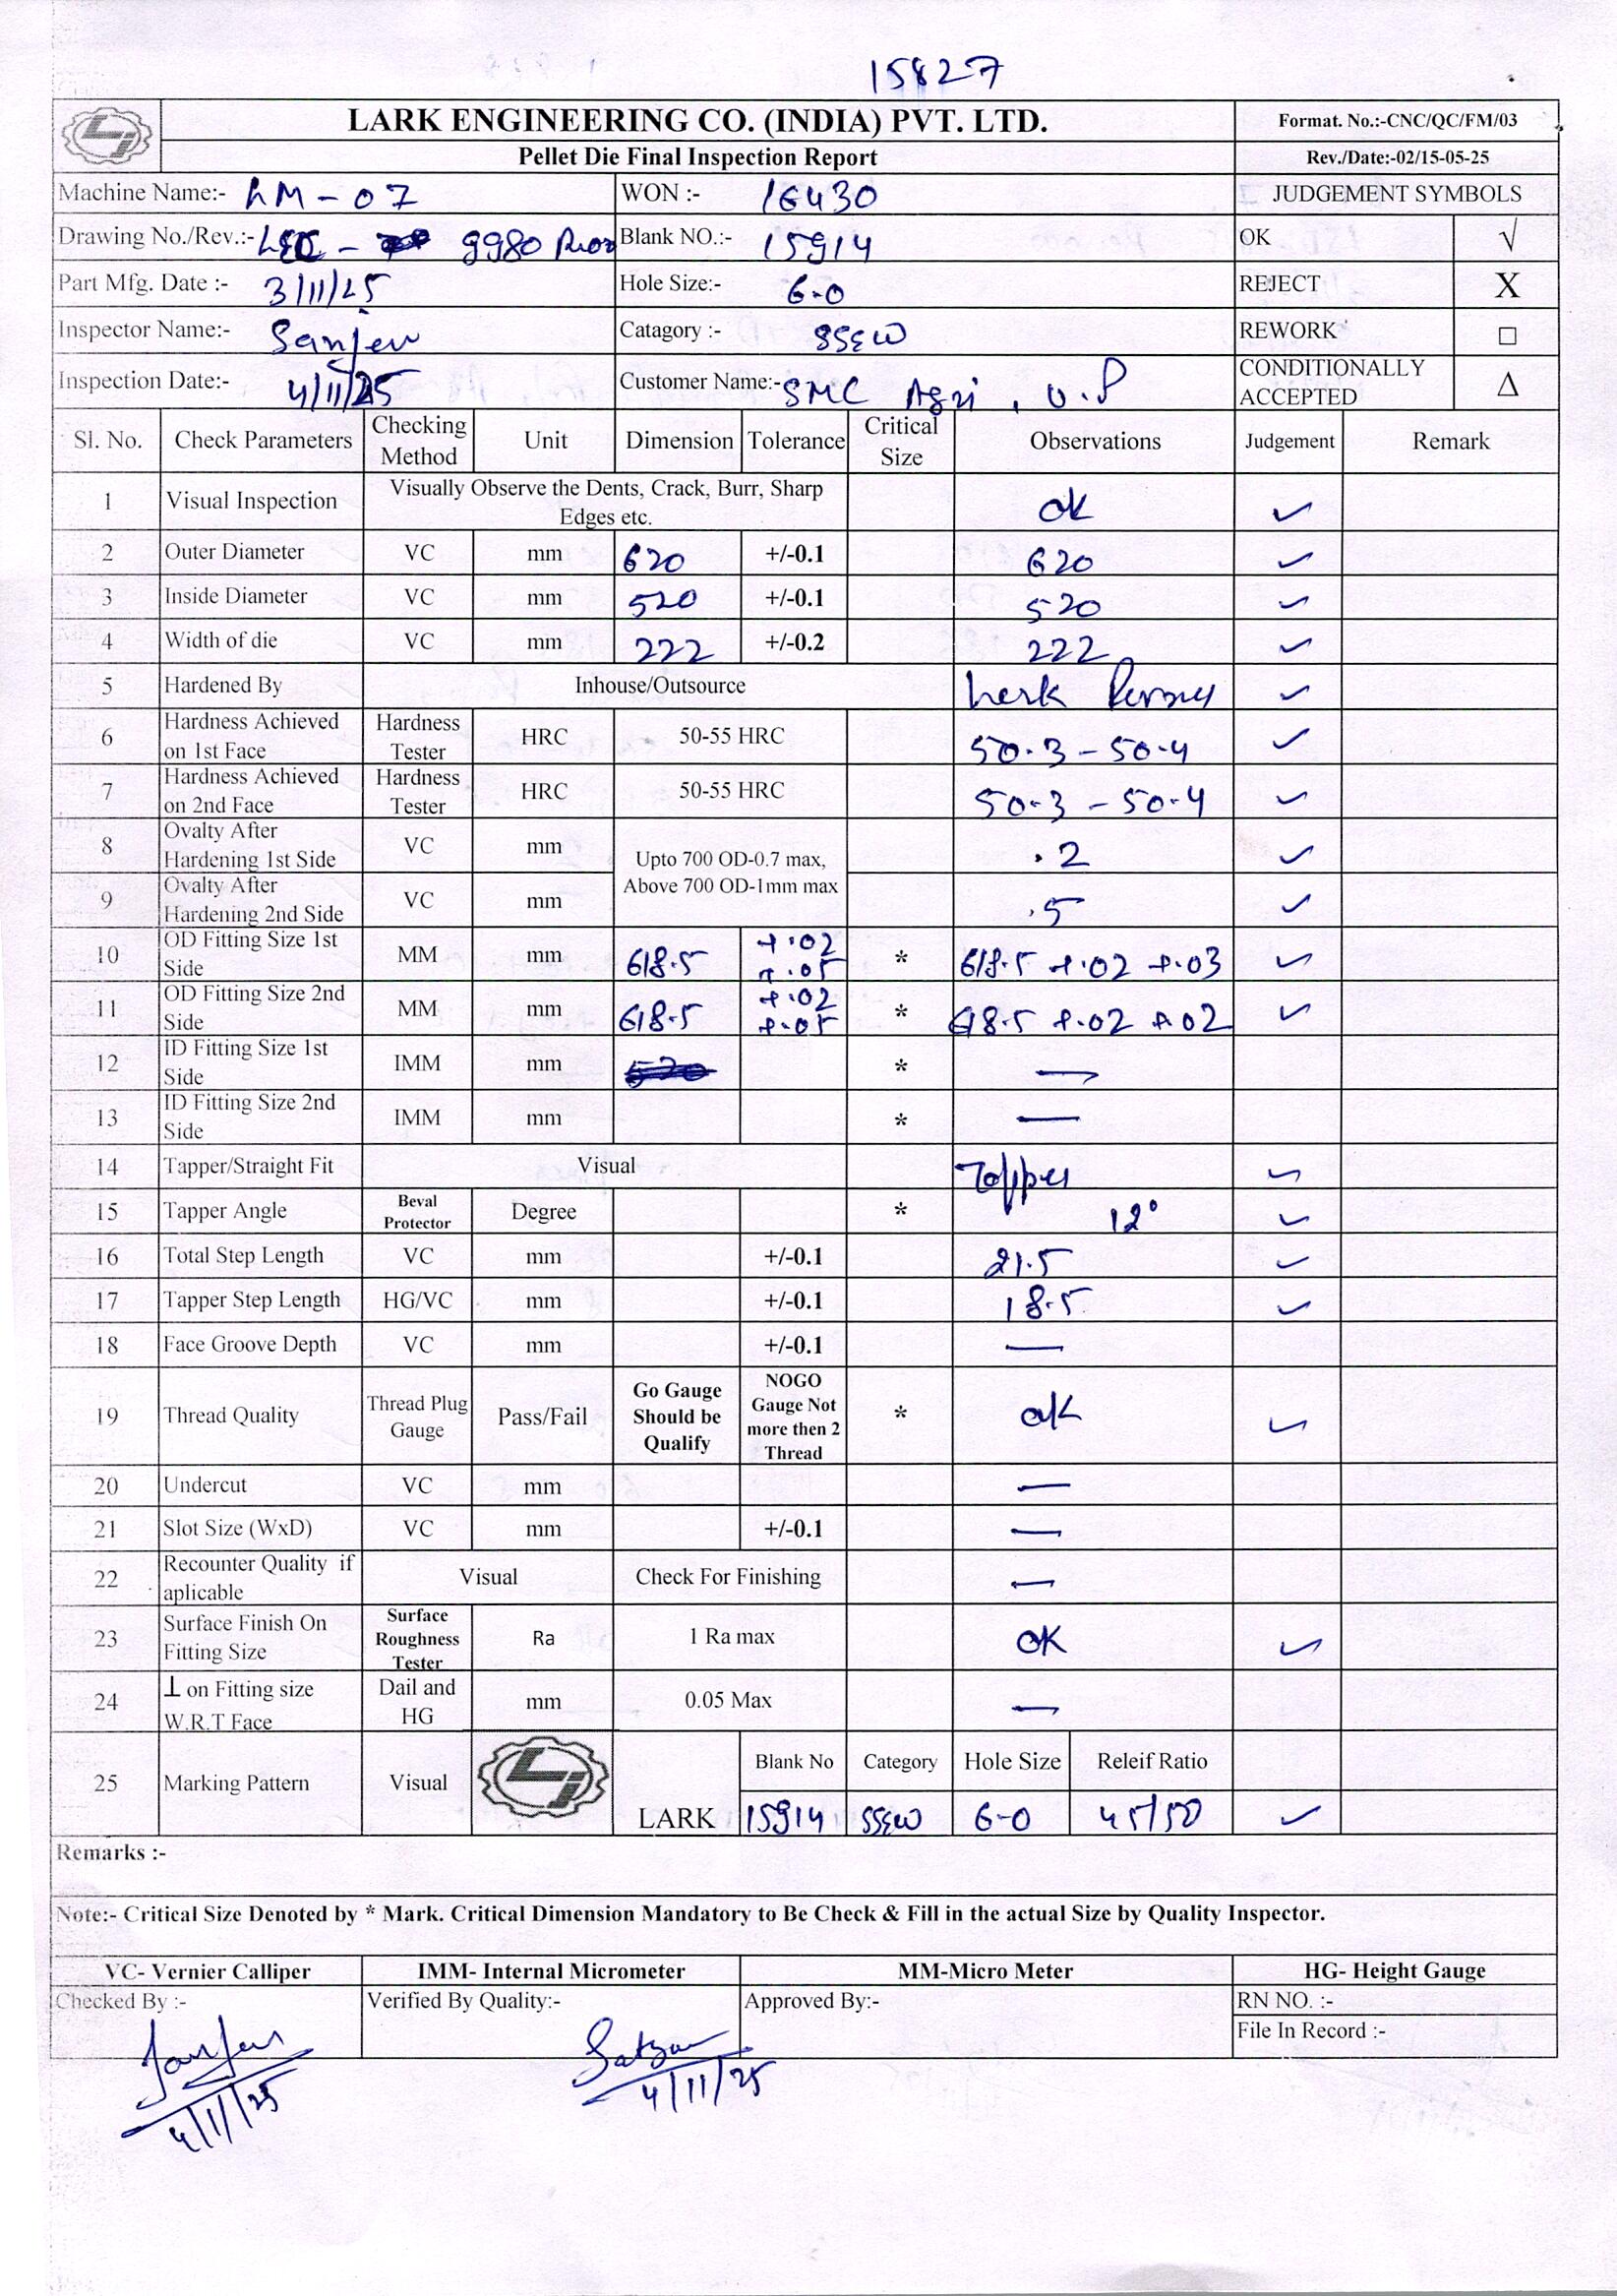 15827
LARK ENGINEERING CO. (INDIA) PVT. LTD.
Format. No.:-CNC/QC/FM/03
Pellet Die Final Inspection Report
Rev./Date:-02/15-05-25
Machine Name:- LM-07 WON :- 16430 JUDGEMENT SYMBOLS
Drawing No./Rev.:- 9980 Blank NO.:- 15914 OK √
Part Mfg. Date :- 3/11/25 Hole Size:- 6.0 REJECT X
Inspector Name:- Sanjeev Catagory :- SSEW REWORK □
Inspection Date:- 4/11/25 Customer Name:- SMC Agri, U.P CONDITIONALLY ACCEPTED Δ
Sl. No. Check Parameters Checking Method Unit Dimension Tolerance Critical Size Observations Judgement Remark
1 Visual Inspection Visually Observe the Dents, Crack, Burr, Sharp Edges etc. ok ✓
2 Outer Diameter VC mm 620 +/-0.1 620 ✓
3 Inside Diameter VC mm 520 +/-0.1 520 ✓
4 Width of die VC mm 222 +/-0.2 222 ✓
5 Hardened By Inhouse/Outsource ✓
6 Hardness Achieved on 1st Face Hardness Tester HRC 50-55 HRC 50.3 - 50.4 ✓
7 Hardness Achieved on 2nd Face Hardness Tester HRC 50-55 HRC 50.3 - 50.4 ✓
8 Ovalty After Hardening 1st Side VC mm Upto 700 OD-0.7 max, Above 700 OD-1mm max .2 ✓
9 Ovalty After Hardening 2nd Side VC mm .5 ✓
10 OD Fitting Size 1st Side MM mm 618.5 +.02 +.05 * 618.5 +.02 +.03 ✓
11 OD Fitting Size 2nd Side MM mm 618.5 +.02 +.05 * 618.5 +.02 +.02 ✓
12 ID Fitting Size 1st Side IMM mm * —
13 ID Fitting Size 2nd Side IMM mm * —
14 Tapper/Straight Fit Visual Tapper ✓
15 Tapper Angle Beval Protector Degree * 12° ✓
16 Total Step Length VC mm +/-0.1 21.5 ✓
17 Tapper Step Length HG/VC mm +/-0.1 18.5 ✓
18 Face Groove Depth VC mm +/-0.1 —
19 Thread Quality Thread Plug Gauge Pass/Fail Go Gauge Should be Qualify NOGO Gauge Not more then 2 Thread * ok ✓
20 Undercut VC mm —
21 Slot Size (WxD) VC mm +/-0.1 —
22 Recounter Quality if aplicable Visual Check For Finishing —
23 Surface Finish On Fitting Size Surface Roughness Tester Ra 1 Ra max OK ✓
24 ⊥ on Fitting size W.R.T Face Dail and HG mm 0.05 Max —
25 Marking Pattern Visual LARK Blank No Category Hole Size Releif Ratio
15914 SSEW 6-0 45/50 ✓
Remarks :-
Note:- Critical Size Denoted by * Mark. Critical Dimension Mandatory to Be Check & Fill in the actual Size by Quality Inspector.
VC- Vernier Calliper IMM- Internal Micrometer MM-Micro Meter HG- Height Gauge
Checked By :- Verified By Quality:- Approved By:- RN NO. :-
File In Record :-
4/11/25 4/11/25